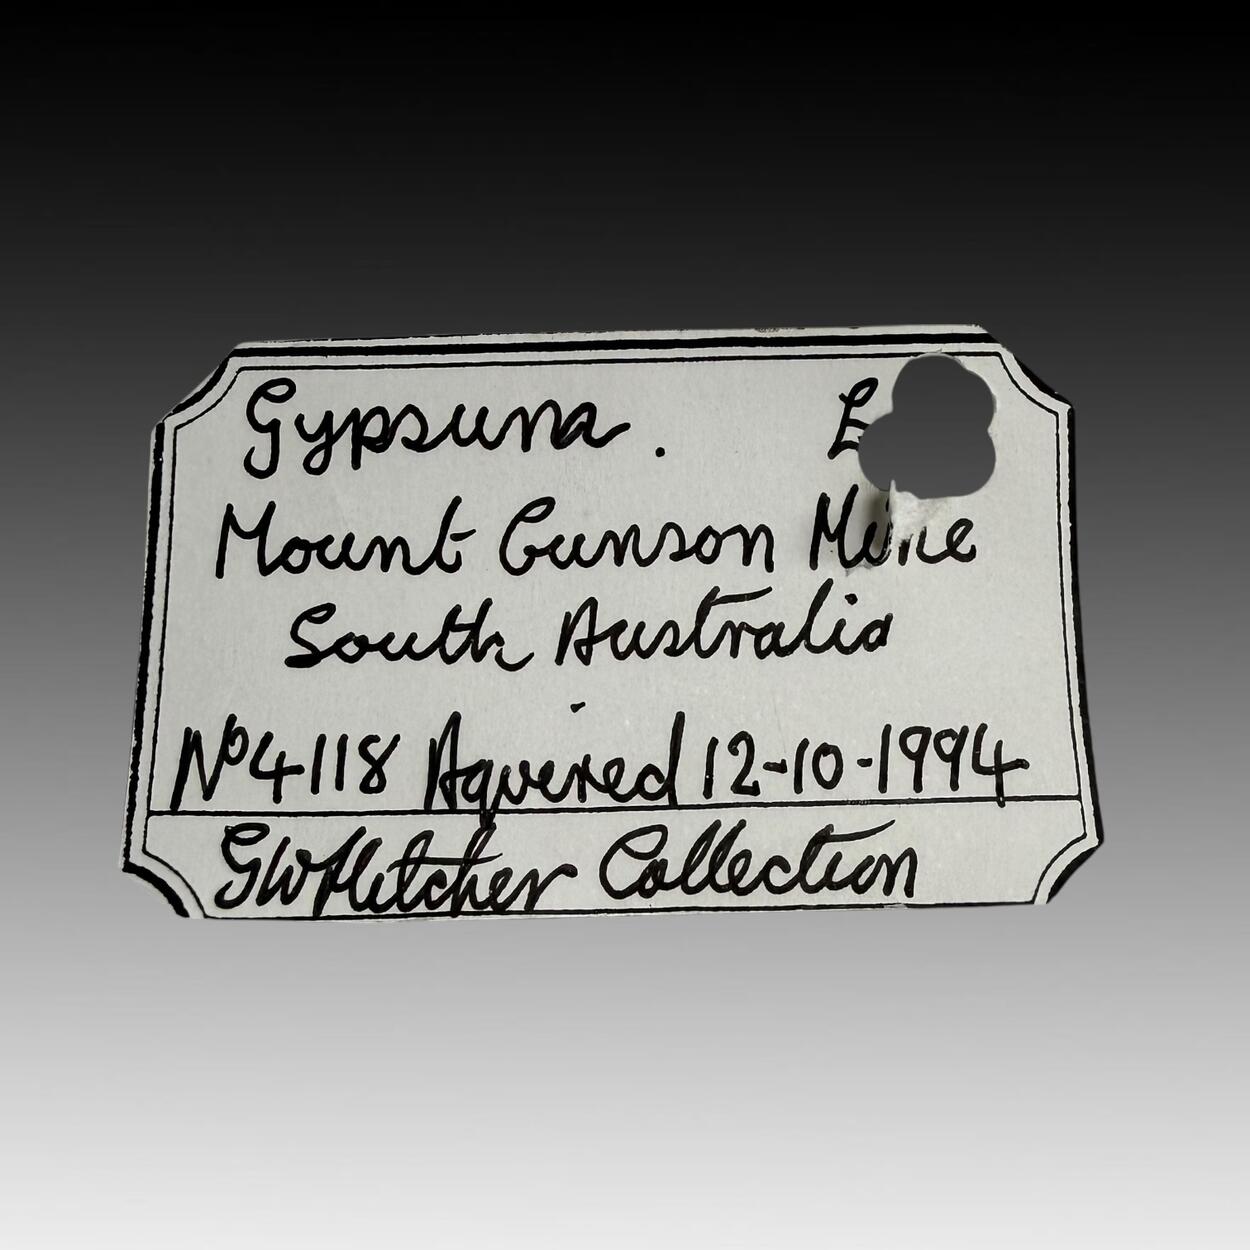 Gypsuma. E
Mount Gunson Mine
South Australia
No 4118 Aquired 12-10-1994
GW Fletcher Collection